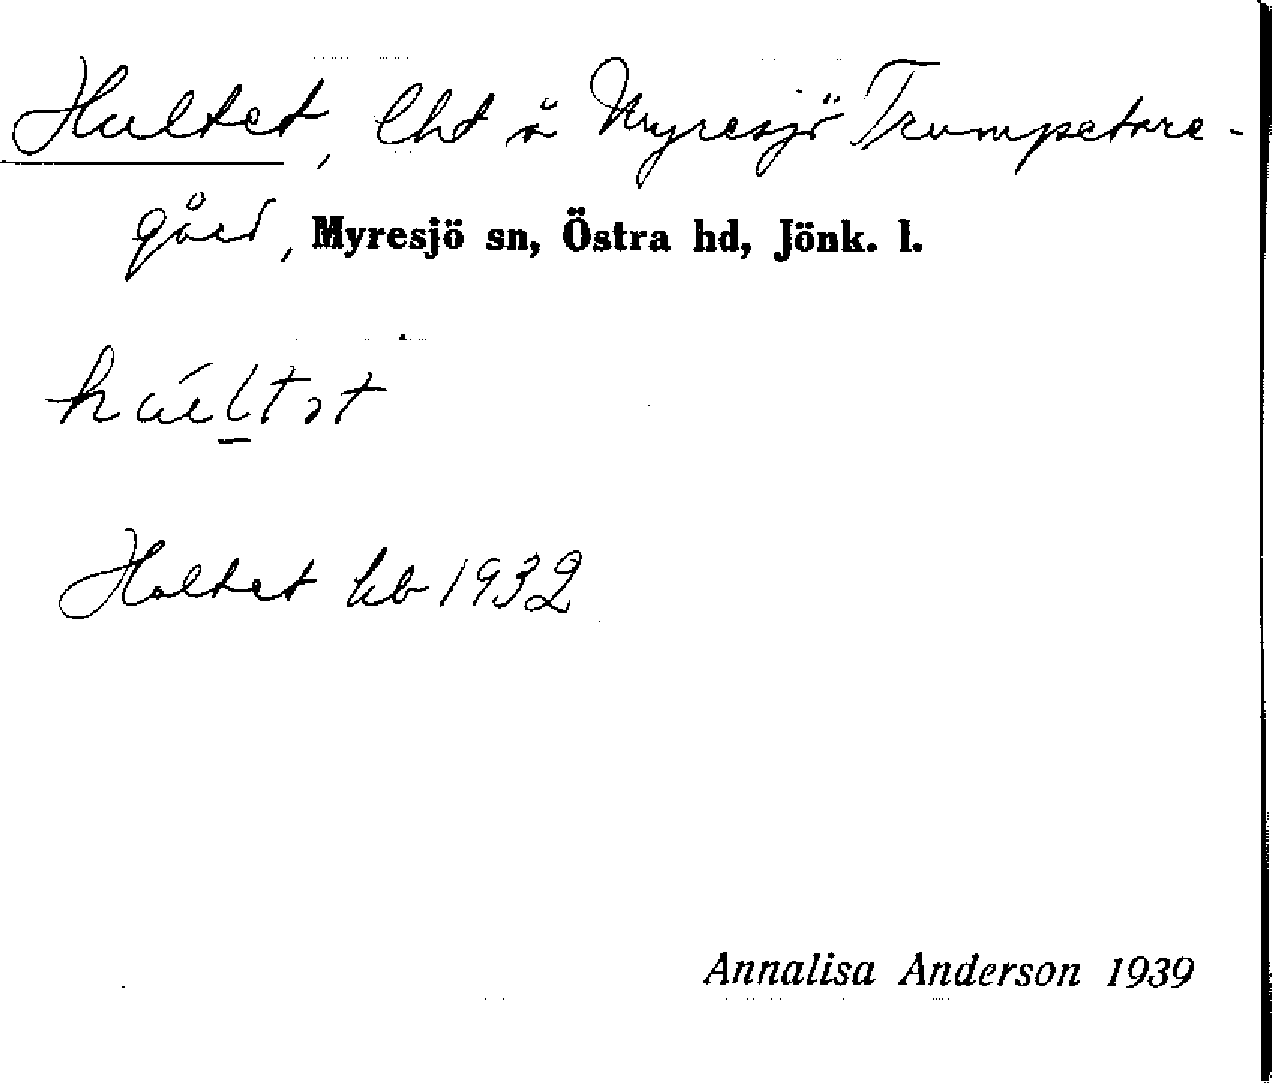 Hultet, lht å Myresjö Trumpetare-
gård, Myresjö sn, Östra hd, Jönk. l.
Hultet hb 1932
Annalisa Anderson 1939